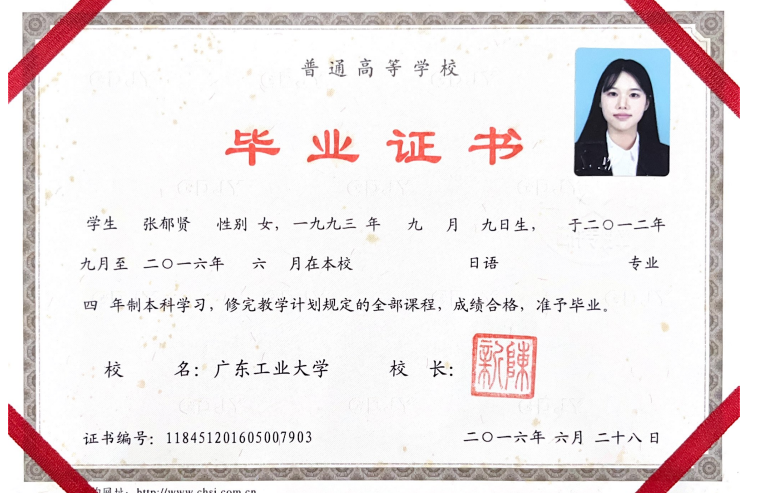 普通高等学校
毕业证书
学生 张郁贤 性别 女，一九九三 年 九 月 九日生， 于二〇一二年
九月至 二〇一六年 六 月在本校 日语 专业
四 年制本科学习，修完教学计划规定的全部课程，成绩合格，准予毕业。
校 名：广东工业大学 校 长：
陈新
证书编号：118451201605007903 二〇一六年 六月 二十八日
网址：http://www.chsi.com.cn